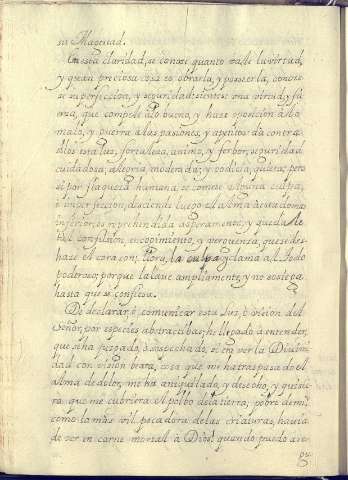 su Magestad.
En esta claridad, se conoze quanto vale la virtud,
y quan preciosa cosa es obrarla, y posseerla, conoze
se su perfeccion, y seguridad; sientese una virtud y fu
erza, que compele a lo bueno, y haze oposicion a lo
malo, y guerra a las pasiones, y apetitos; da contra e
llos esta luz, fortaleza, animo, y ferbor, seguridad
cuidadosa, alegria moderada, y sollicita, quieta; pero
si por flaqueza humana, se comete alguna culpa,
o imperfeccion, desciende luego el alma a su estado mas
inferior, es reprehendida asperamente, y queda
tal confusion, encogimiento, y verguenza, que se des
haze el corazon; llora, la culpa, y clama al Todo
poderoso, porque la labe ampliamente, y no sosiega
hasta que se confiesa.
De declarar, o comunicar esta Luz, o vision del
Señor, por especies abstractibas; he llegado, a entender,
que se ha juzgado, o sospechado, si era ver la Divini
dad con vision beata, cosa que me ha traspasado el
alma de dolor, me ha aniquilado, y desecho, y quisie
ra, que me cubriera el polbo de la tierra; pobre de mi,
como la mas vil pecadora de las criaturas, havia
de ver en carne mortal, a Dios! quando puedo ase
gu